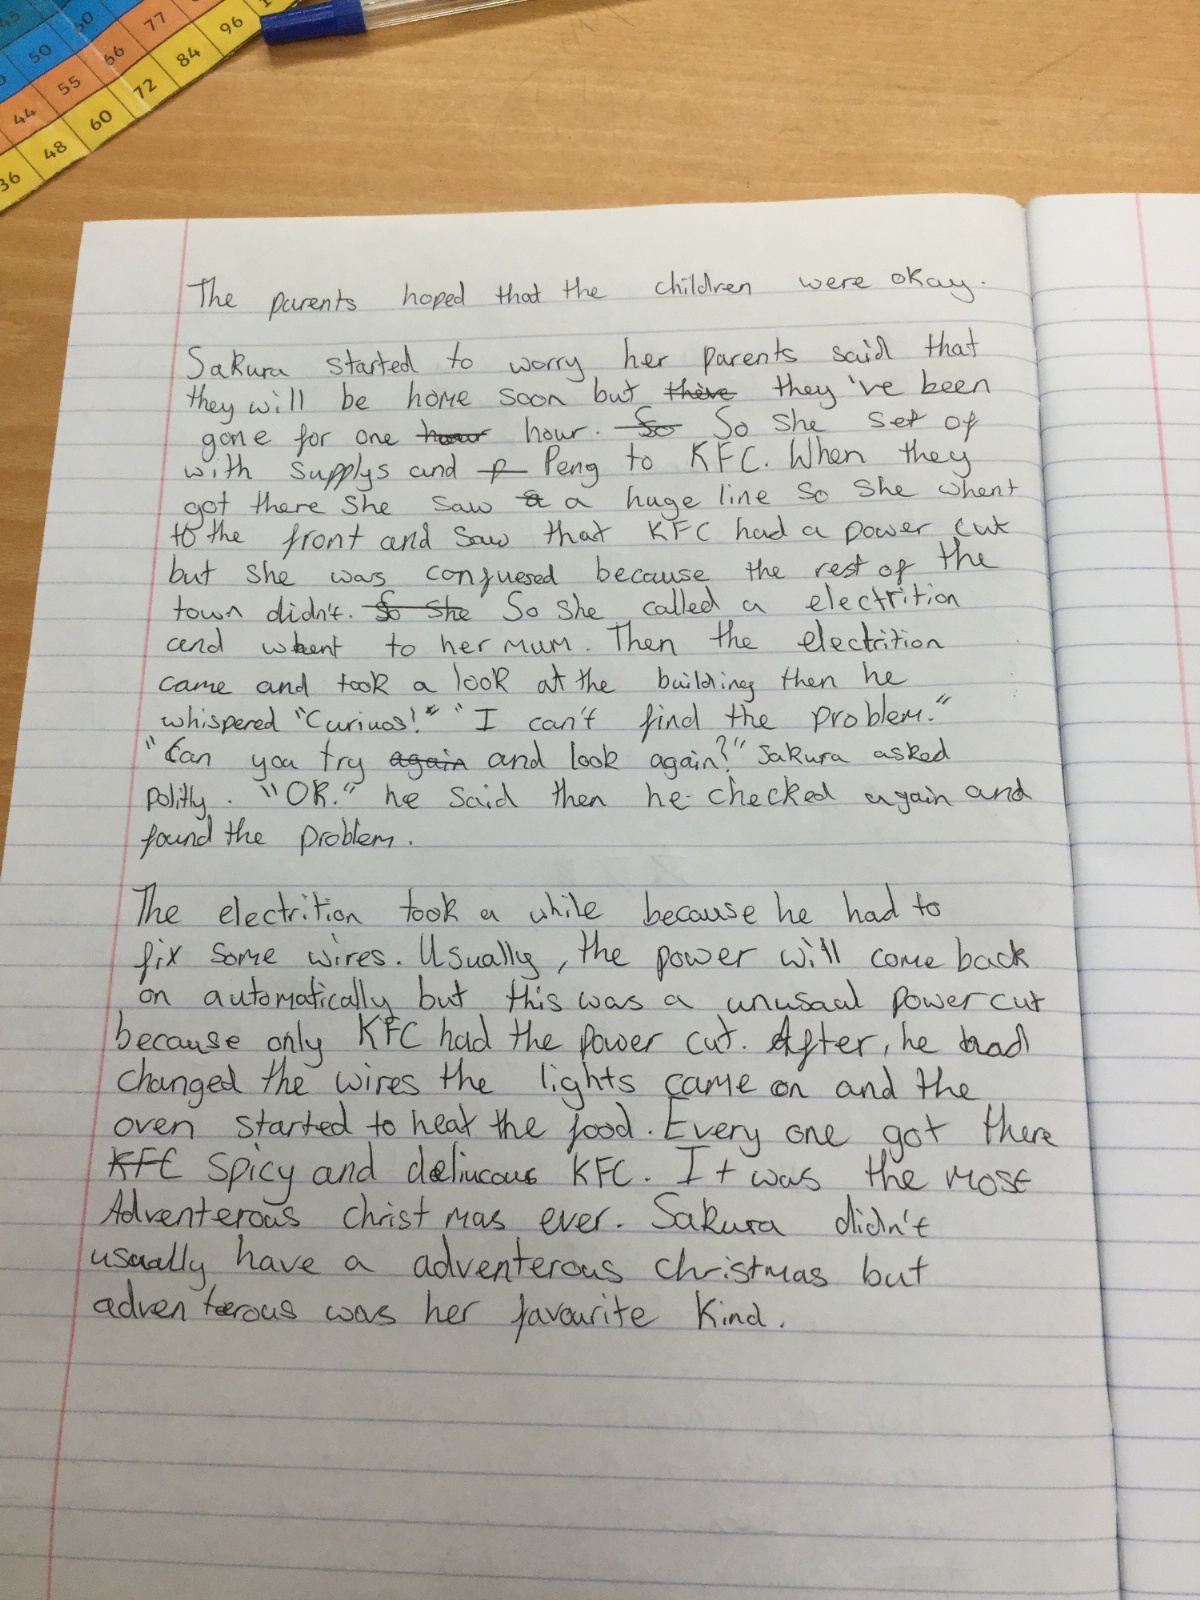 45 50 60
50 66 77
44 55 84 96
36 48 60 72
The parents hoped that the children were okay.
Sakura started to worry her parents said that
they will be home soon but there they've been
gone for one hour hour. So So she set of
with supplys and p Peng to KFC. When they
got there she saw a a huge line so she whent
to the front and saw that KFC had a power cut
but she was confuesed because the rest of the
town didn't. So she So she called a electrition
and whent to her mum. Then the electrition
came and took a look at the building then he
whispered "Curiuos!" "I can't find the problem."
"Can you try again and look again?" Sakura asked
politly. "OK." he said then he checked again and
found the problem.
The electrition took a while because he had to
fix some wires. Usually, the power will come back
on automatically but this was a unusaul power cut
because only KFC had the power cut. After, he had
changed the wires the lights came on and the
oven started to heat the food. Every one got there
KFC spicy and deliucous KFC. It was the most
Adventerous christmas ever. Sakura didn't
usually have a adventerous christmas but
adventerous was her favourite kind.